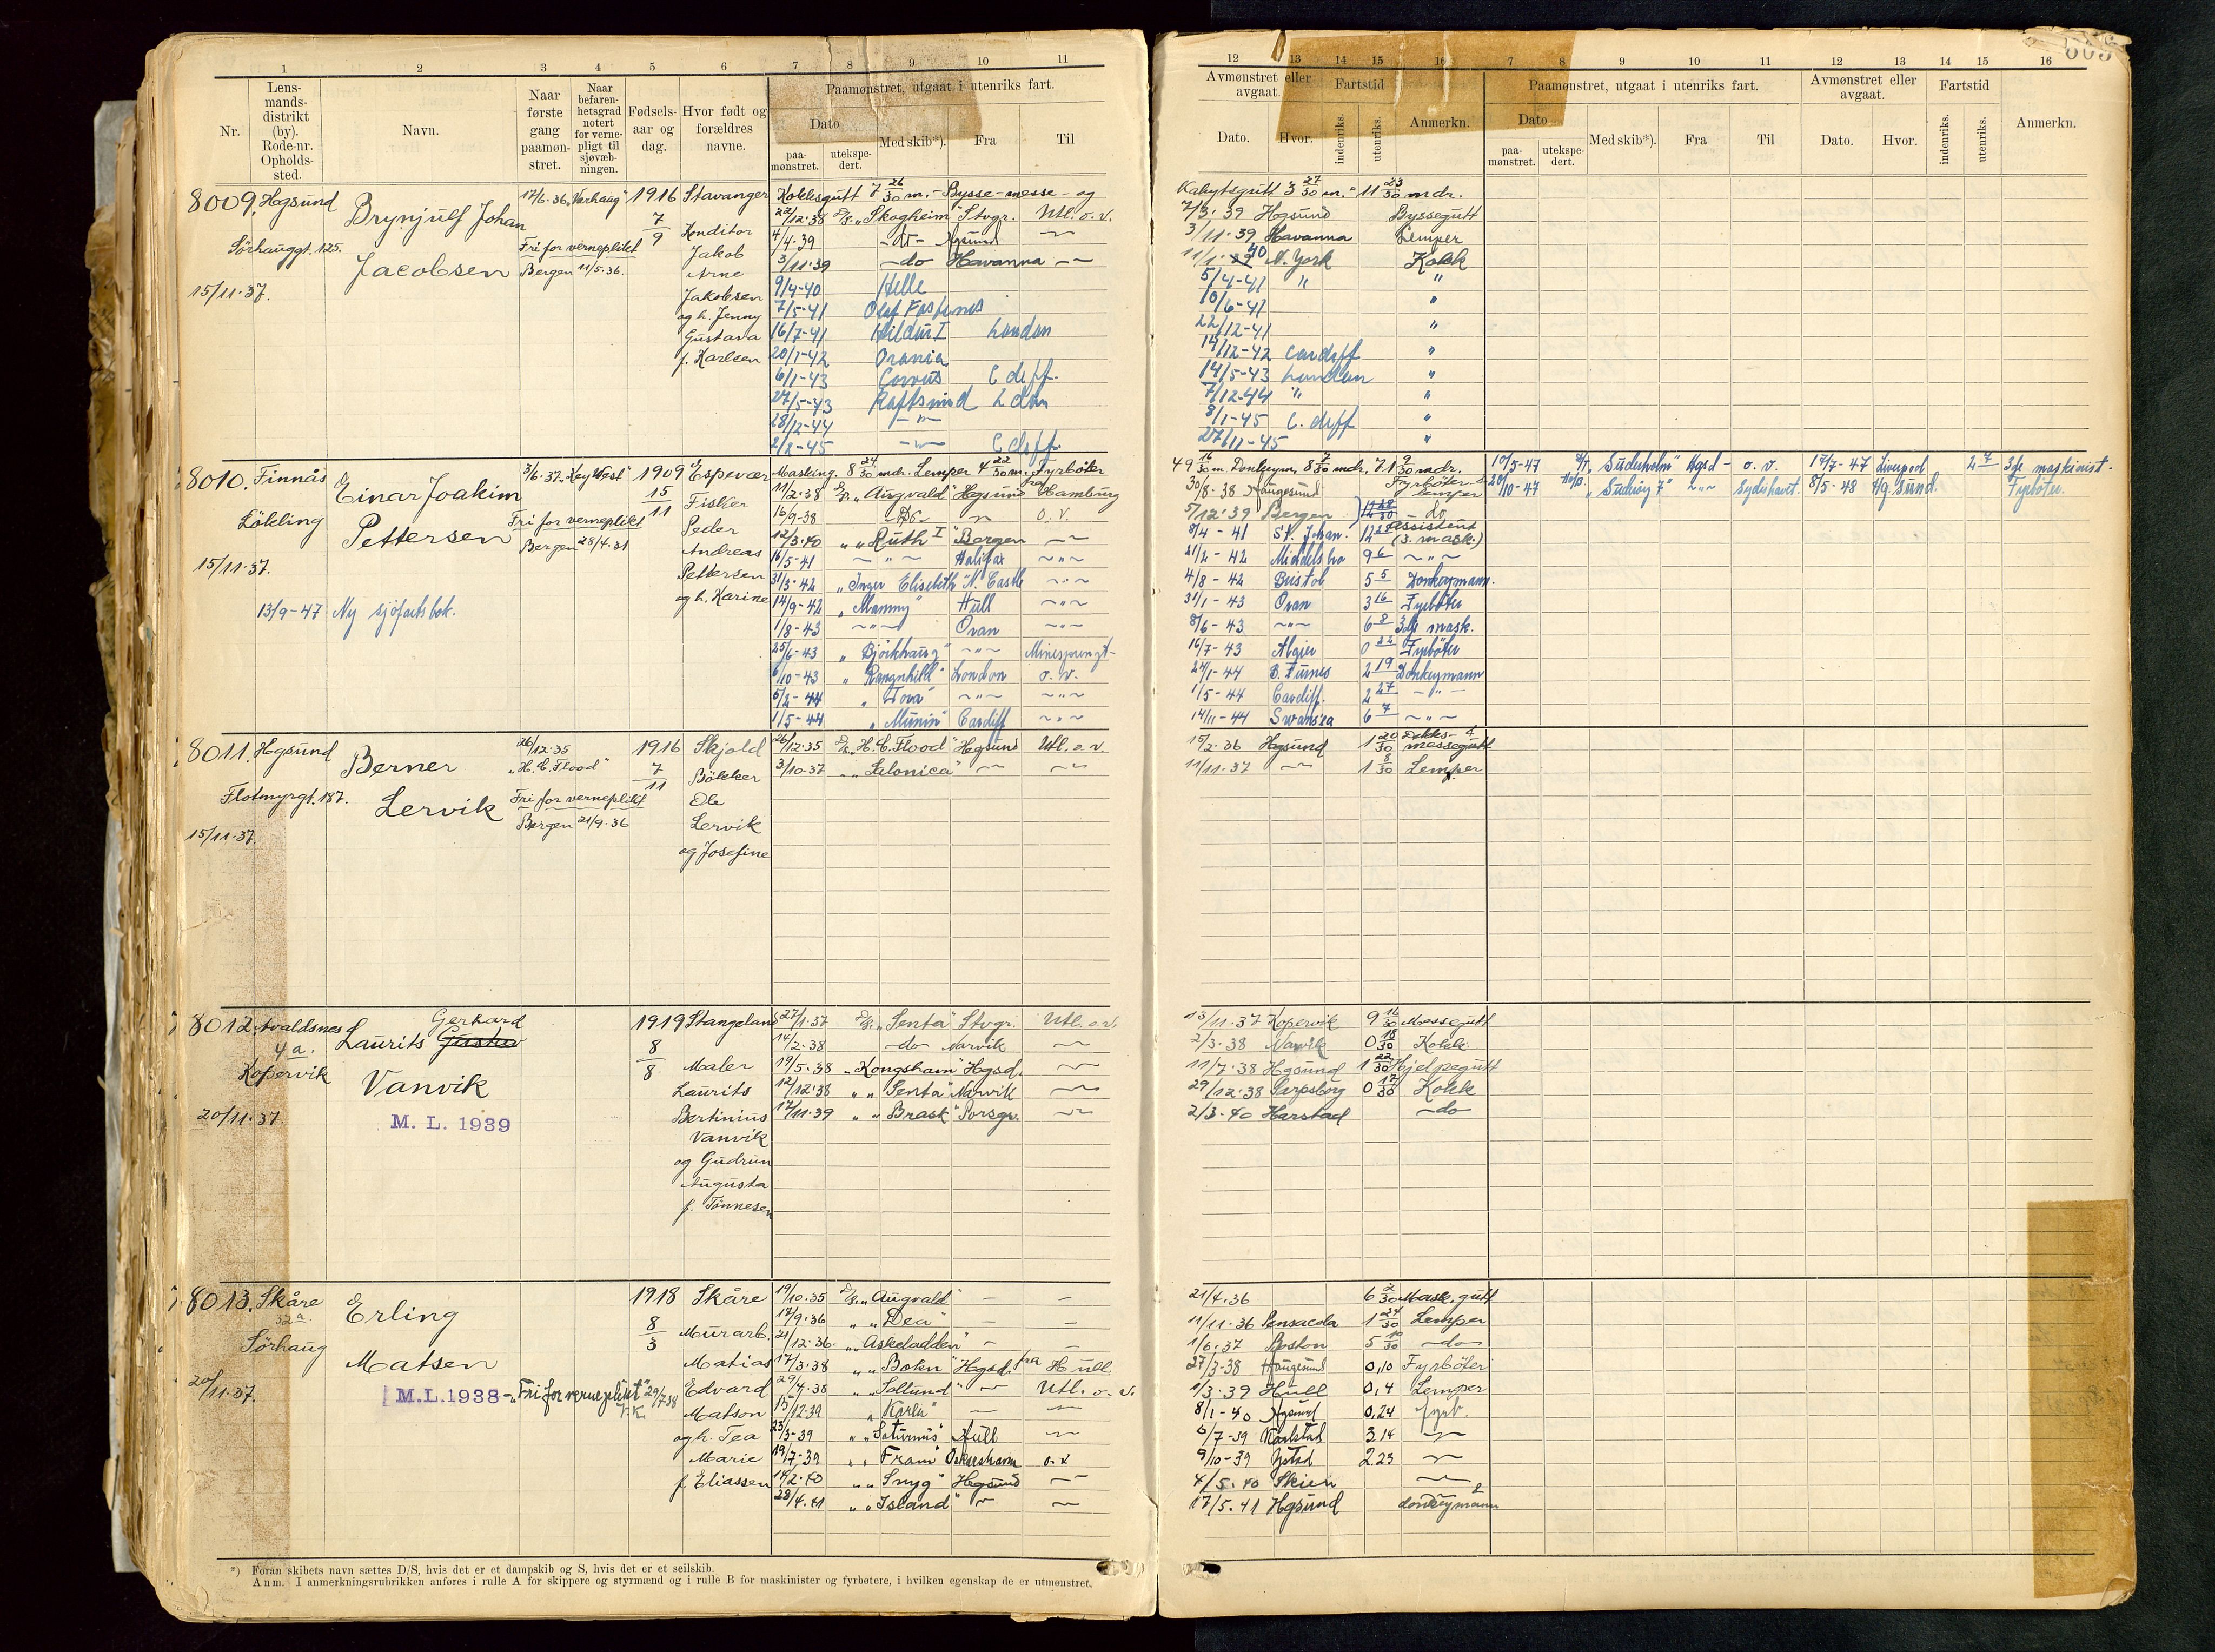 1 2 3 4 5 6 7 8 9 10 11
Nr.
Lens-
mands-
distrikt
(by).
Rode-nr.
Opholds-
sted.
Navn.
Naar
første
gang
paamøn-
stret.
Naar
befaren-
hetsgrad
notert
for verne-
pligt til
sjøvæb-
ningen.
Fødsels-
aar og
dag.
Hvor født og
forældres
navne.
Paamønstret, utgaat i utenriks fart.
Dato
paa-
mønstret.
utekspe-
dert.
Med skib*).
Fra
Til
12 13 14 15 16 7 8 9 10 11 12 13 14 15 16
Avmønstret eller
avgaat.
Fartstid
Dato.
Hvor.
indenriks.
utenriks.
Anmerkn.
Paamønstret, utgaat i utenriks fart.
Dato
paa-
mønstret.
utekspe-
dert.
Med skib*).
Fra
Til
Avmønstret eller
avgaat.
Fartstid
Dato.
Hvor.
indenriks.
utenriks.
Anmerkn.
8009. Hgsund
Sörhauggt. 125.
15/11.37.
Brynjulf Johan
Jacobsen
17/6.36
Fri for verneplikt
Bergen 11/5.36.
1916
7
9
Stavanger
Konditor
Jakob
Arne
Jakobsen
og h. Jenny
Gustava
f. Karlsen
Kokksgutt 7 26/30 m. - Bysse-messe- og
22/12.38 D/S. „Skogheim" Stvgr. Utl. o. v.
4/4.39 -do- Hgsund
3/11.39 -do- Havanna
9/4-40 Helle
7/5-41 Olaf Fostenes
16/7-41 Hildur I London
20/1-42 Orania
6/1-43 Corvus C diff.
27/5-43 Raftsund Ldon
28/12-44
2/2-45 C diff.
Kahytsgutt 3 27/30 m. 11 23/30 mdr.
7/3.39 Hgsund Byssegutt
3/11.39 Havanna Lemper
11/1 40 N. York Kokk
5/4-41 "
10/6-41 "
22/12-41 "
14/12-42 Cardiff "
14/5-43 London "
7/12-44 " "
8/1-45 C. diff "
27/11-45 "
8010. Finnås
Lökling
15/11.37.
13/9-47 Ny sjöfartsbok.
Einar Joakim
Pettersen
3/6.37. „Key West"
Fri for verneplikt
Bergen 28/4.31
1909
15
11
Espevær
Fisker
Peder
Andreas
Pettersen
og h. Karine
Masking. 8 24/30 mdr. Lemper 4 22/30 m. Fyrböter
11/2.38 D/S. „Augvald" Hgsund fra Hamburg
16/9-38 -Do- o. v.
12/3.40 „ „Ruth I" Bergen
16/5-41 Halifax
31/3-42 „Inger Elisabeth" N. Castle
14/9-42 „Mammy" Hull
1/8-43 Oran
25/6-43 „Björkhaug" Minesprengt
6/10-43 „Rangnhild" London o. v.
5/2-44 „Tova"
1/5-44 „Munin" Cardiff
49 16/30 m. Donkeym. 8 7/30 mdr. 71 9/30 mdr.
30/8-38 Haugesund Fyrböter & lemper
5/12.39 Bergen - do
8/4-41 St. Johan. Assistent (3. mask.)
21/2-42 Middelsbro 9 6
4/8-42 Bristol 5 5 Donkeymann.
31/1-43 Oran 3 16 Fyrböter
8/6-43 6 8 3dje mask.
16/7-43 Algier 0 22 Fyrböter
24/1-44 B. Furnes 2 19 Donkeymann
1/5-44 Cardiff. 2 27
14/11-44 Swansea 6 7
10/5-47 „Suderholm" Hgsd - o. v. 17/7-47 Liverpool 2 7 3dje maskinist.
20/10-47 „Suderöy 7" Sydishavet. 8/5-48 Hg.sund. Fyrböter.
8011. Hgsund
Flotmyrgt. 187.
15/11.37.
Berner
Lervik
26/12.35
„H. C. Flood"
Fri for verneplikt
Bergen 21/9.36
1916
7
11
Skjold
Bökker
Ole
Lervik
og Josefine
26/12.35 D/S. „H. C. Flood" Hgsund Utl. o. v.
3/10.37 „ „Salonica"
15/2.36 Hgsund 1 20/30 Dekks- & messegutt
11/11.37 1 8/30 Lemper
8012. Avaldsnes
4 a.
Kopervik
20/11.37
Gerhard
Laurits
Vanvik
M. L. 1939
1919
8
8
Stangeland
Maler
Laurits
Bertinius
Vanvik
og Gudrun
Augusta
f. Tönnesen
27/1.37 D/S. „Senta" Stvgr. Utl. o. v.
14/2.38 -do- Narvik
19/5.38 „Kongsham" Hgsd.
12/12.38 „ „Senta" Narvik
17/11.39 „ „Brask" Porsgr.
13/11.37 Kopervik 9 16/30 Messegutt
2/3.38 Narvik 0 18/30 Kokk
11/7.38 Hgsund 1 22/30 Hjelpegutt
29/12.38 Sarpsborg 0 17/30 Kokk
2/3.40 Harstad -do
8013. Skåre
32 a.
Sörhaug
20/11.37.
Erling
Matsen
M.L. 1938 - „Fri for verneplikt" 29/7 38
1918
8
3
Skåre
Murarb.
Matias
Edvard
Matson
og h. Tea
Marie
f. Eliassen
19/10.35 D/S. „Augvald" - -
17/9.36 „ „Dea" - -
21/12.36. „ „Askeladden" - -
17/3.38 „ „Bokn" Hgsd. fra Hull
29/4.38 „ „Solund" Utl. o. v.
15/12.39 „Karla"
23/3-39 „ „Saturnus" Hull
19/7-39 „ „Fram" Oskarshamn o.v
14/2.40 „ „Snyg" Hgsund
28/4.41 „ „Island"
21/4.36 6 2/30 Mask. gutt
11/11.36 Pensacola 1 24/30 Lemper
1/6.37 Boston 5 10/30 -do-
27/3-38 Haugesund 0,10 Fyrböter
1/3.39 Hull 0,4 Lemper
8/1-40 Hgsund 0,24 fyrb.
6/7-39 Karlstad 3,14
9/10-39 Ystad 2.23
4/5.40 Skien
17/5.41 Hgsund donkeymann
*) Foran skibets navn sættes D/S, hvis det er et dampskib og S, hvis det er et seilskib.
Anm. I anmerkningsrubrikken anføres i rulle A for skippere og styrmænd og i rulle B for maskinister og fyrbøtere, i hvilken egenskap de er utmønstret.